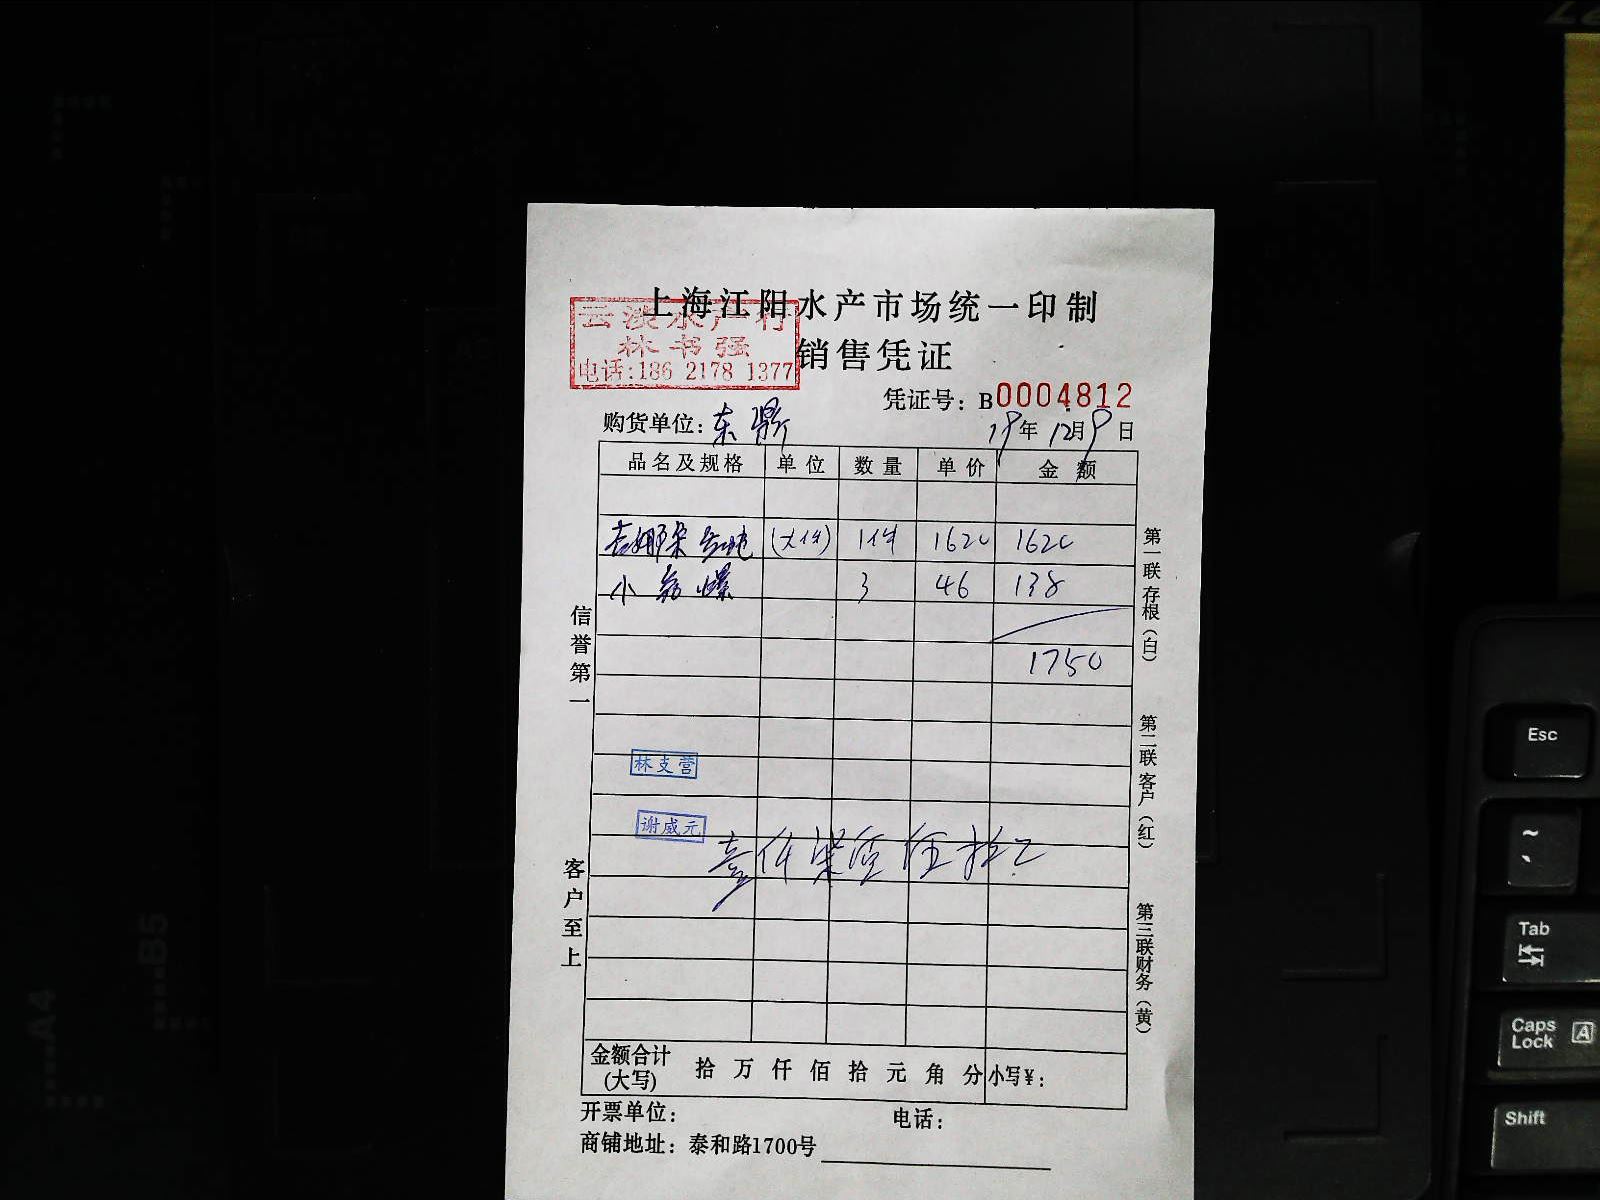 上海江阳水产市场统一印制
销售凭证
水产行
林书强
电话:186 2178 1377
凭证号: B0004812
购货单位: 东鼎
19年12月9日
品名及规格 单位 数量 单价 金额
(大件) 1件 1620 1620
小 螺 3 46 138
1750
林支营
谢威元
壹仟柒百伍拾元
金额合计(大写) 拾 万 仟 佰 拾 元 角 分 小写¥:
开票单位: 电话:
商铺地址: 泰和路1700号
信誉第一
客户至上
第一联存根(白)
第二联客户(红)
第三联财务(黄)
A4
B5
Esc
~
、
Tab
Caps Lock A
Shift